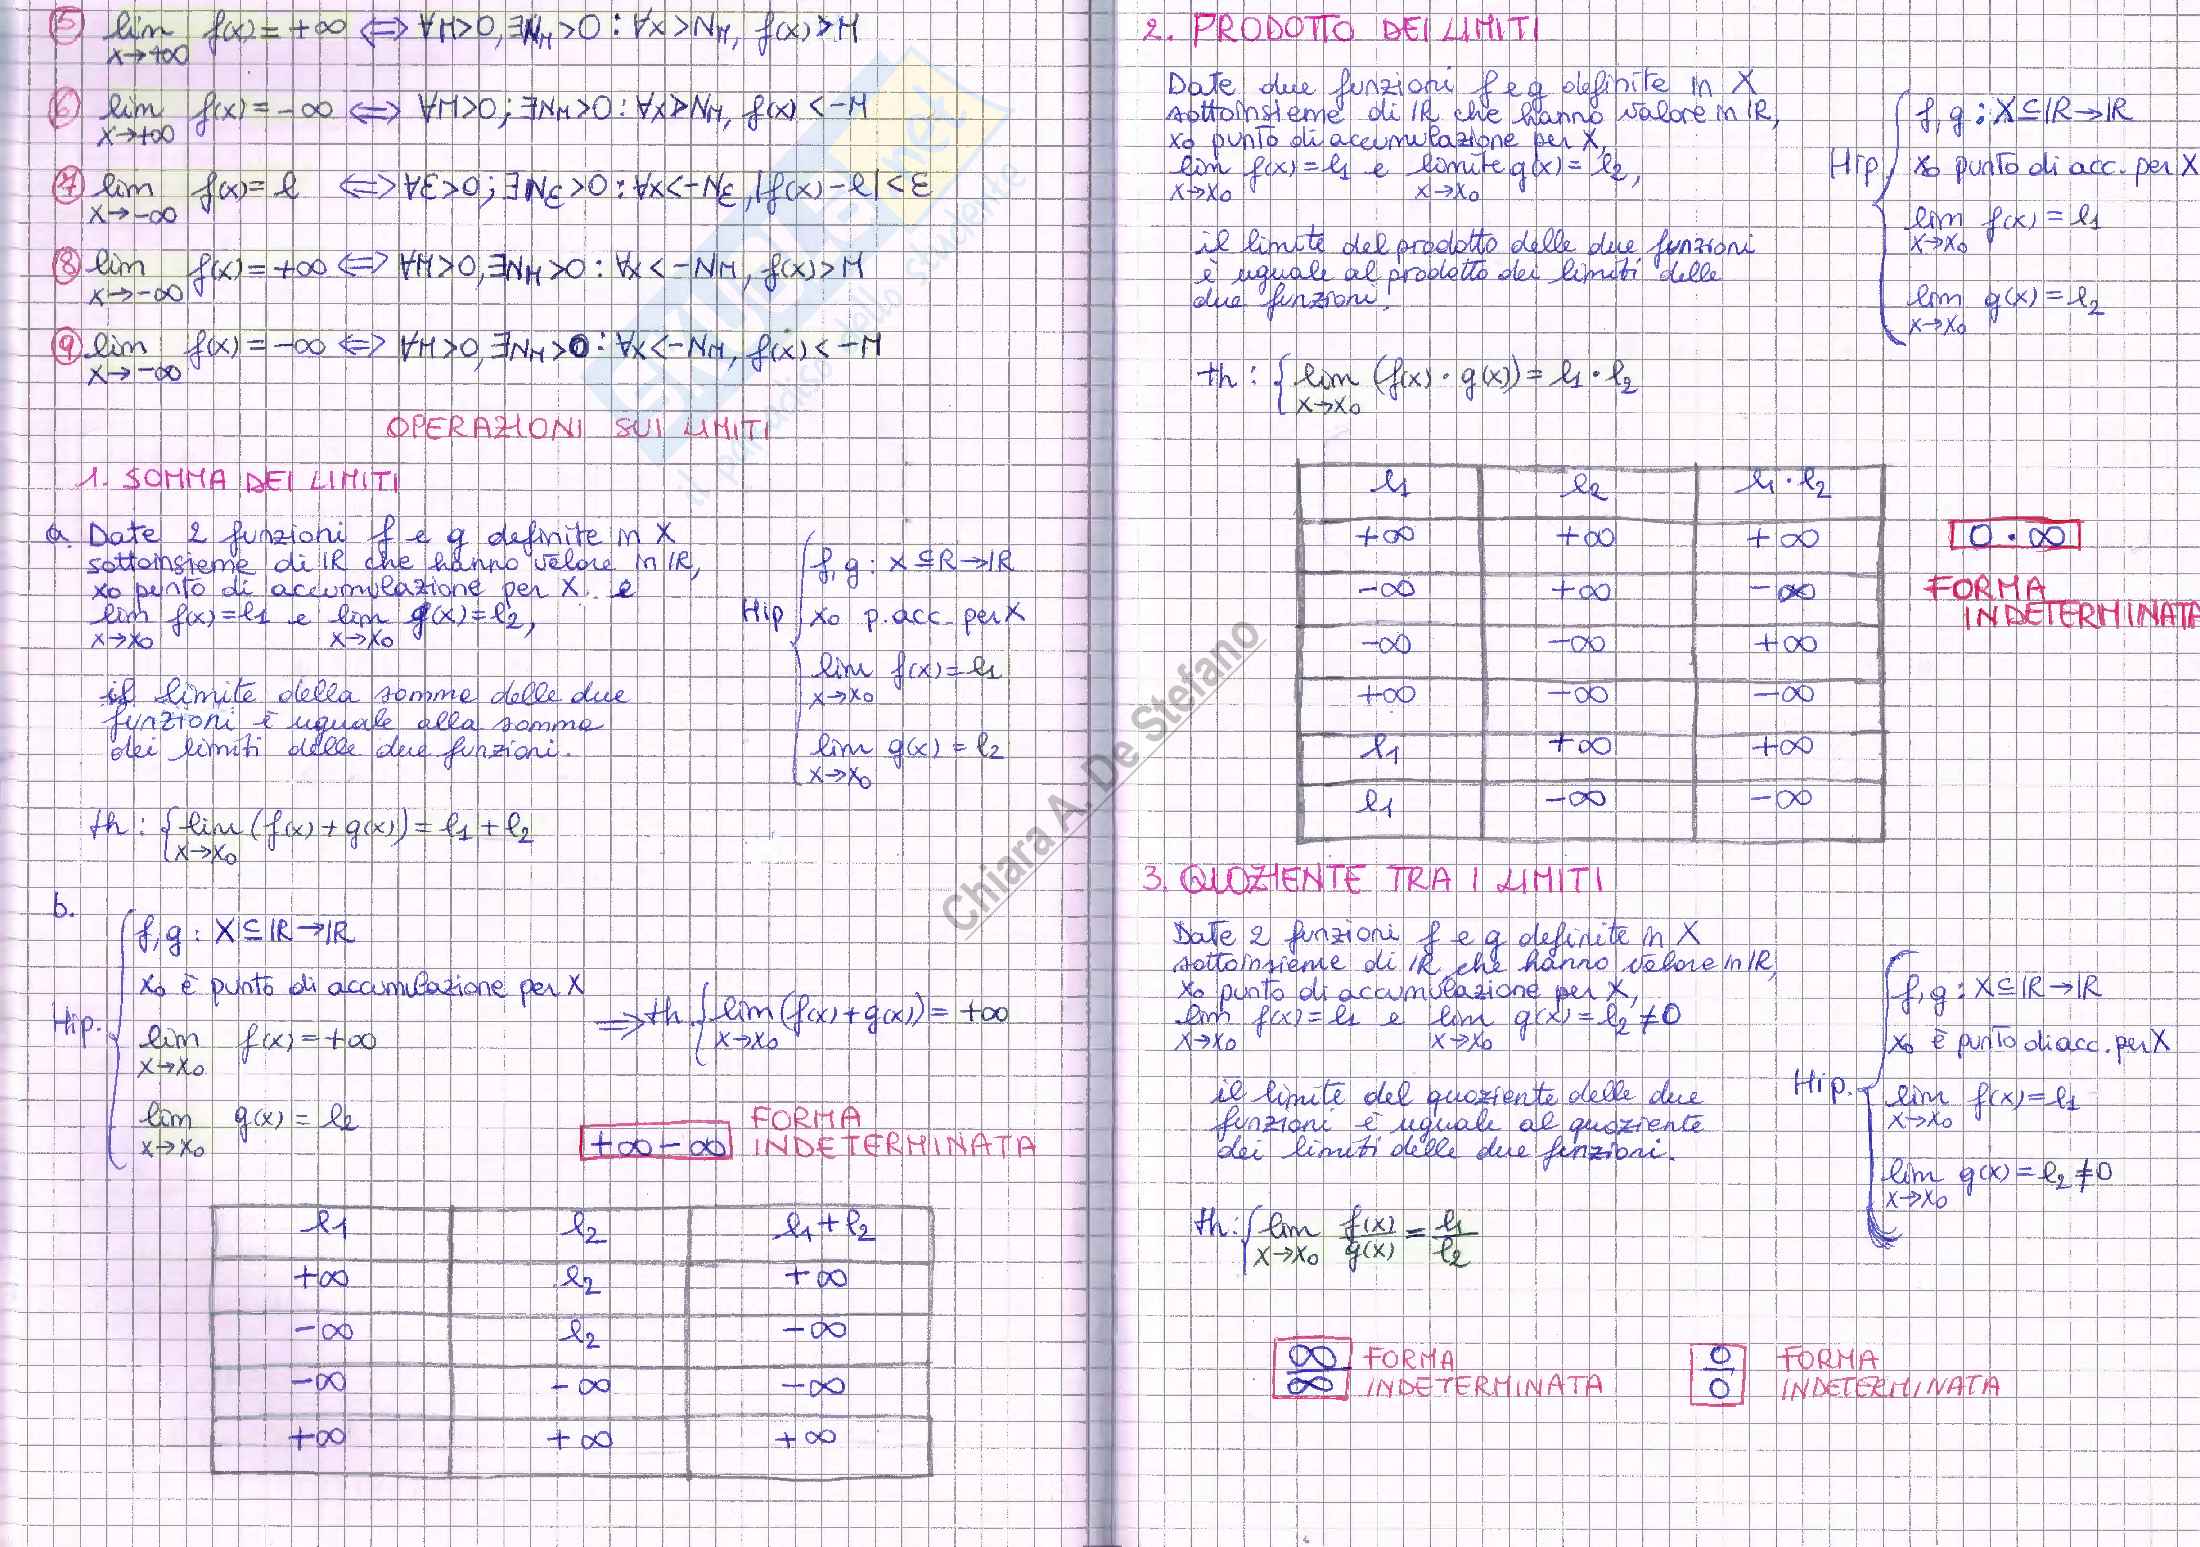 5 lim f(x) = +∞ ⟺ ∀M>0, ∃N_M>0 : ∀x>N_M, f(x)>M
x→+∞
6 lim f(x) = -∞ ⟺ ∀M>0; ∃N_M>0 : ∀x>N_M, f(x) < -M
x→+∞
7 lim f(x) = l ⟺ ∀ε>0; ∃N_ε>0 : ∀x<-N_ε, |f(x)-l|<ε
x→-∞
8 lim f(x) = +∞ ⟺ ∀M>0, ∃N_M>0 : ∀x<-N_M, f(x)>M
x→-∞
9 lim f(x) = -∞ ⟺ ∀M>0, ∃N_M>0 : ∀x<-N_M, f(x)<-M
x→-∞
OPERAZIONI SUI LIMITI
1. SOMMA DEI LIMITI
a. Date 2 funzioni f e g definite in X
sottoinsieme di IR che hanno valore in IR,
x0 punto di accumulazione per X e
lim f(x)=l1 e lim g(x)=l2,
x→x0 x→x0
il limite della somma delle due
funzioni è uguale alla somma
dei limiti delle due funzioni.
Hip
f,g : X⊆R→IR
x0 p.acc. per X
lim f(x)=l1
x→x0
lim g(x)=l2
x→x0
th : { lim (f(x)+g(x)) = l1+l2
x→x0
b.
Hip.
f,g : X⊆IR→IR
x0 è punto di accumulazione per X
lim f(x)=+∞
x→x0
lim g(x)=l2
x→x0
⟹ th. { lim (f(x)+g(x)) = +∞
x→x0
+∞-∞ FORMA
INDETERMINATA
l1 l2 l1+l2
+∞ l2 +∞
-∞ l2 -∞
-∞ -∞ -∞
+∞ +∞ +∞
2. PRODOTTO DEI LIMITI
Date due funzioni f e g definite in X
sottoinsieme di IR che hanno valore in IR,
x0 punto di accumulazione per X,
lim f(x)=l1 e limite g(x)=l2,
x→x0 x→x0
il limite del prodotto delle due funzioni
è uguale al prodotto dei limiti delle
due funzioni.
Hip
f,g : X⊆IR→IR
x0 punto di acc. per X
lim f(x)=l1
x→x0
lim g(x)=l2
x→x0
th : { lim (f(x)·g(x)) = l1·l2
x→x0
l1 l2 l1·l2
+∞ +∞ +∞
-∞ +∞ -∞
-∞ -∞ +∞
+∞ -∞ -∞
l1 +∞ +∞
l1 -∞ -∞
0·∞
FORMA
INDETERMINATA
3. QUOZIENTE TRA I LIMITI
Date 2 funzioni f e g definite in X
sottoinsieme di IR, che hanno valore in IR,
x0 punto di accumulazione per X,
lim f(x)=l1 e lim g(x)=l2≠0
x→x0 x→x0
il limite del quoziente delle due
funzioni è uguale al quoziente
dei limiti delle due funzioni.
Hip.
f,g : X⊆IR→IR
x0 è punto di acc. per X
lim f(x)=l1
x→x0
lim g(x)=l2≠0
x→x0
th: { lim f(x)/g(x) = l1/l2
x→x0
∞/∞ FORMA
INDETERMINATA
0/0 FORMA
INDETERMINATA
Chiara A. De Stefano
il paradiso dello studente